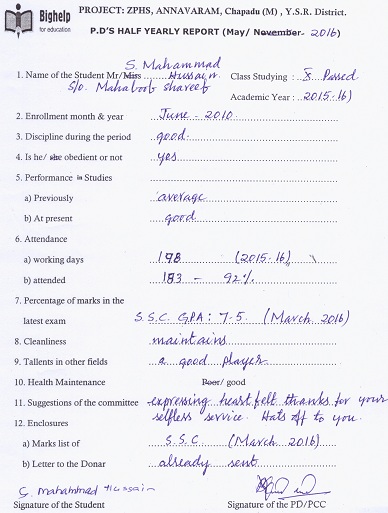 Bighelp
for education
PROJECT: ZPHS, ANNAVARAM, Chapadu (M) , Y.S.R. District.
P.D'S HALF YEARLY REPORT (May/ November- 2016)
S. Mahammad
1. Name of the Student Mr/Miss Hussain Class Studying : X Passed
S/o. Mahaboob shareef
Academic Year : 2015-16)
2. Enrollment month & year June - 2010
3. Discipline during the period good
4. Is he/ she obedient or not yes
5. Performance in Studies
a) Previously average
b) At present good
6. Attendance
a) working days 198 (2015-16)
b) attended 183 - 92%
7. Percentage of marks in the
latest exam S.S.C. GPA: 7-5. (March 2016)
8. Cleanliness maintains
9. Tallents in other fields a good player
10. Health Maintenance Poor/ good
11. Suggestions of the committee expressing heart felt thanks for your
selfless service. Hats off to you.
12. Enclosures
a) Marks list of S.S.C (March 2016)
b) Letter to the Donar already sent
S. Mahammad Hussain
Signature of the Student Signature of the PD/PCC